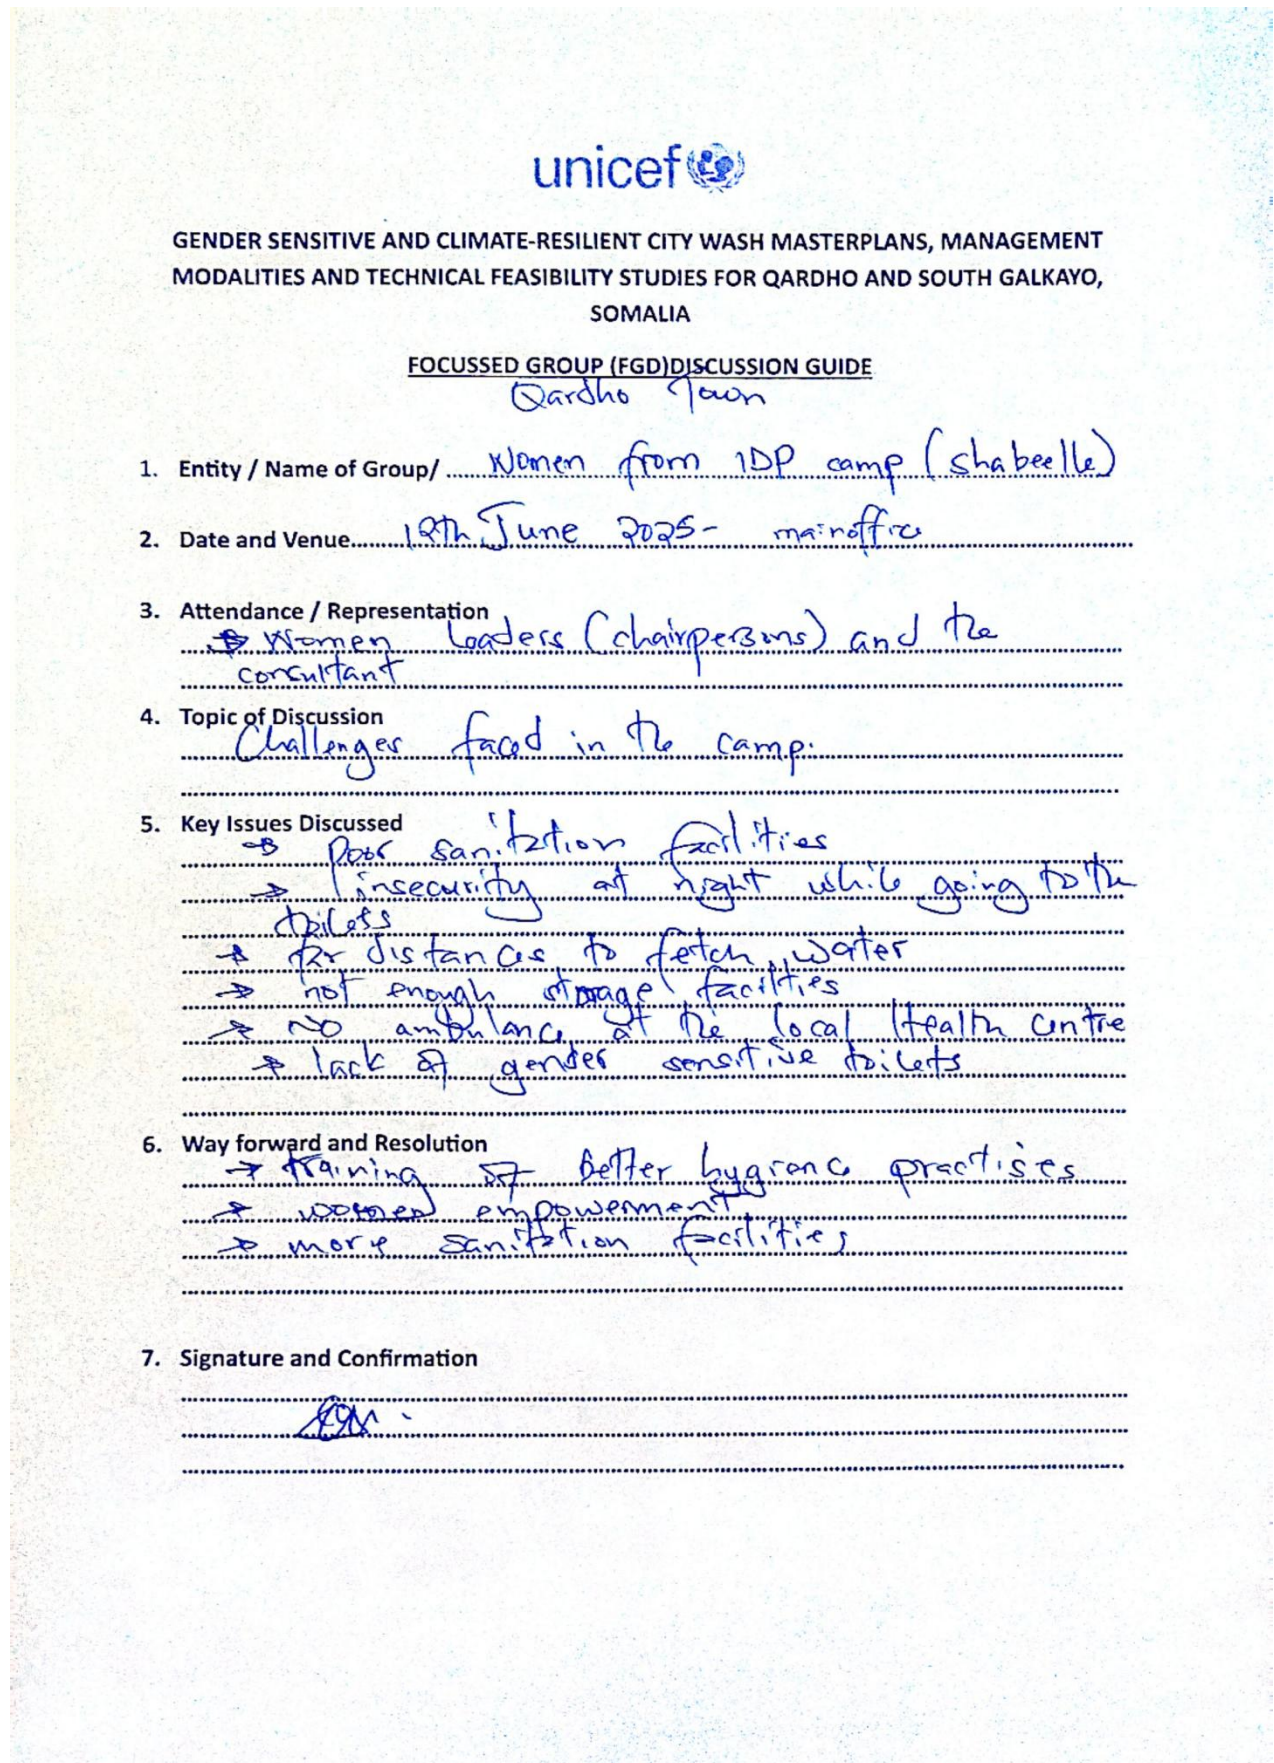 unicef
GENDER SENSITIVE AND CLIMATE-RESILIENT CITY WASH MASTERPLANS, MANAGEMENT
MODALITIES AND TECHNICAL FEASIBILITY STUDIES FOR QARDHO AND SOUTH GALKAYO,
SOMALIA
FOCUSSED GROUP (FGD)DISCUSSION GUIDE
Qardho Town
1. Entity / Name of Group/ ...... Women from IDP camp (shabeelle)
2. Date and Venue...... June 2025 - mainoffice
3. Attendance / Representation
→ Women Leaders (chairpersons) and the
consultant
4. Topic of Discussion
Challenges faced in the camp.
5. Key Issues Discussed
→ Poor sanitation facilities
→ insecurity at night while going to the
toilets
→ far distances to fetch water
→ not enough storage facilities
→ No ambulance at the local Health centre
→ lack of gender sensitive toilets
6. Way forward and Resolution
→ training of better hygiene practises
→ women empowerment
→ more sanitation facilities
7. Signature and Confirmation